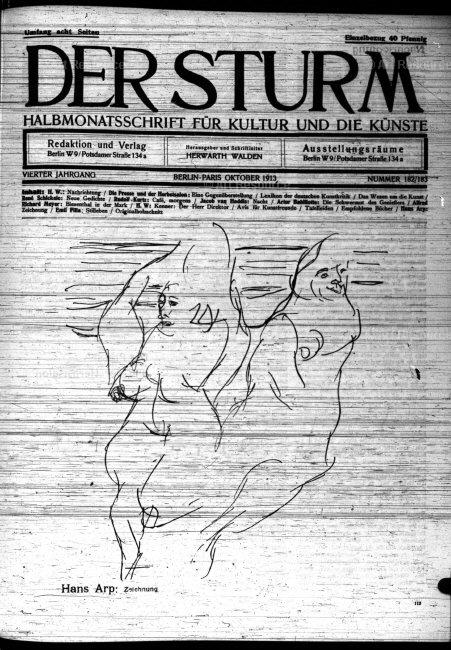 Umfang acht Seiten
Einzelbezug 40 Pfennig
DER STURM
HALBMONATSSCHRIFT FÜR KULTUR UND DIE KÜNSTE
Redaktion und Verlag
Berlin W9/Potsdamer Straße 134a
Herausgeber und Schriftleiter
HERWARTH WALDEN
Ausstellungsräume
Berlin W9/Potsdamer Straße 134a
VIERTER JAHRGANG
BERLIN-PARIS OKTOBER 1913
NUMMER 182/183
Inhalt: H. W.: Nachrichtung / Die Presse und der Herbstsalon: Eine Gegenüberstellung / Lexikon der deutschen Kunstkritik / Das Wesen und die Kunst /
René Schickele: Neue Gedichte / Rudolf Kurtz: Café, morgens / Jacob van Hoddis: Nacht / Artur Babillotte: Die Schwermut des Genießers / Alfred
Richard Meyer: Blumenthal in der Mark / H. W.: Kenner: Der Herr Direktor / Avis für Kunstfreunde / Tafelleiden / Empfohlene Bücher / Hans Arp:
Zeichnung / Emil Filla: Stilleben / Originalholzschnitt
Hans Arp: Zeichnung
113